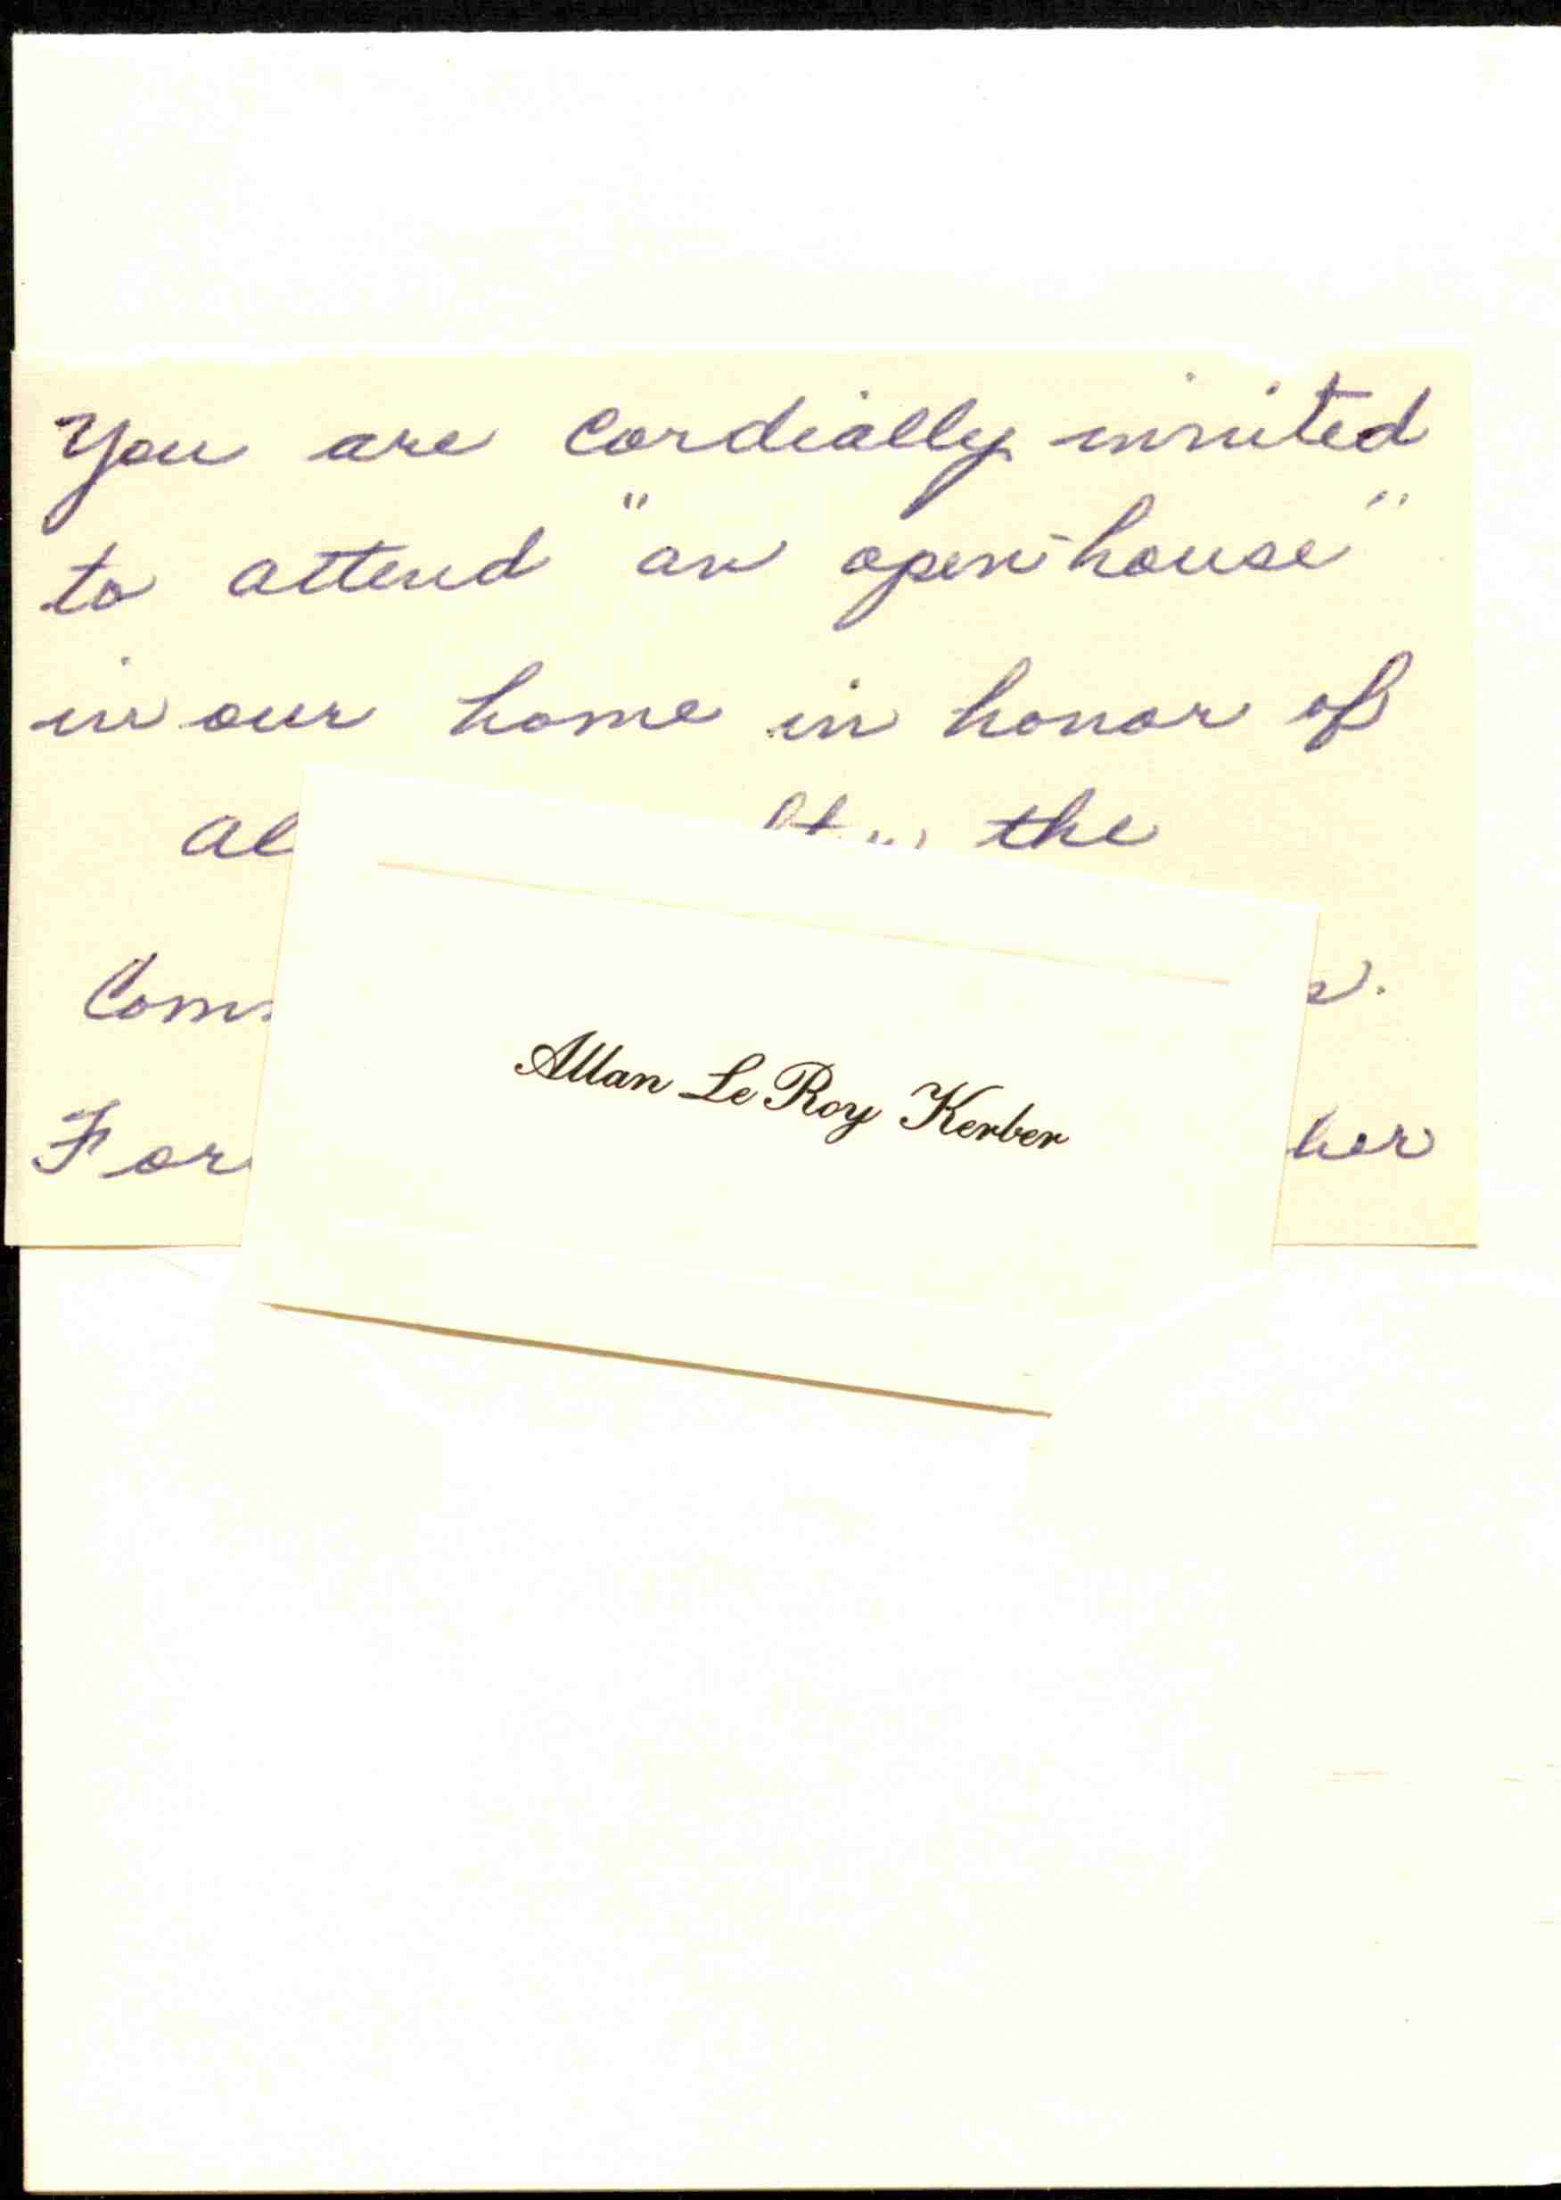 You are cordially invited
to attend "an open-house"
in our home in honor of
the
Allan Le Roy Kerber